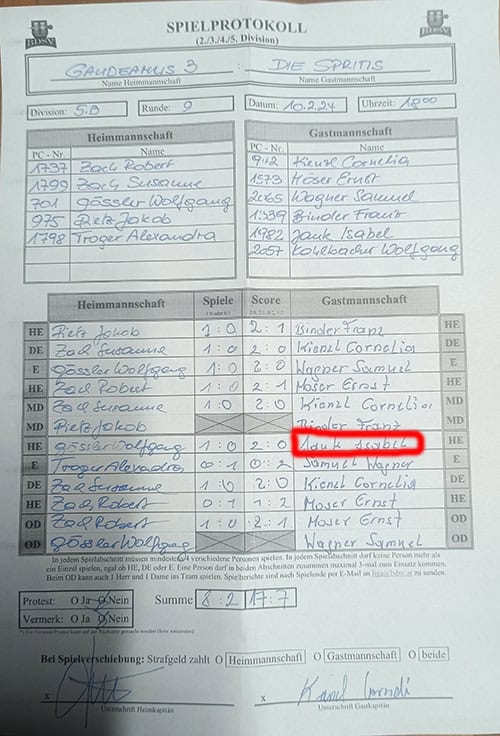 SPIELPROTOKOLL
(2./3./4./5. Division)
BDSV BDSV
GAUDEAMUS 3 : DIE SPRITIS
Name Heimmannschaft Name Gastmannschaft
Division: 5.B Runde: 9 Datum: 10.2.24 Uhrzeit: 18:00
Heimmannschaft
PC - Nr. Name
1737 Zach Robert
1799 Zach Susanne
701 Gössler Wolfgang
975 Pietz Jakob
1798 Troger Alexandra
Gastmannschaft
PC - Nr. Name
942 Kienzl Cornelia
1573 Moser Ernst
2065 Wagner Samuel
1539 Binder Franz
1982 Jauk Isabel
2057 Kohlbacher Wolfgang
Heimmannschaft Spiele Score Gastmannschaft
HE Pietz Jakob 1:0 2:1 Binder Franz HE
DE Zach Susanne 1:0 2:0 Kienzl Cornelia DE
E Gössler Wolfgang 1:0 2:0 Wagner Samuel E
HE Zach Robert 1:0 2:1 Moser Ernst HE
MD Zach Susanne 1:0 2:0 Kienzl Cornelia MD
MD Pietz Jakob Binder Franz MD
HE Gössler Wolfgang 1:0 2:0 Jauk Isabel HE
E Troger Alexandra 0:1 0:2 Samuel Wagner E
DE Zach Susanne 1:0 2:0 Kienzl Cornelia DE
HE Zach Robert 0:1 1:2 Moser Ernst HE
OD Zach Robert 1:0 2:1 Moser Ernst OD
OD Gössler Wolfgang Wagner Samuel OD
In jedem Spielabschnitt müssen mindestens 4 verschiedene Personen spielen. In jedem Spielabschnitt darf keine Person mehr als
ein Einzel spielen, egal ob HE, DE oder E. Eine Person darf in beiden Abschnitten zusammen maximal 3-mal zum Einsatz kommen.
Beim OD kann auch 1 Herr und 1 Dame im Team spielen. Spielberichte sind nach Spielende per E-Mail an zu senden.
Protest: O Ja O Nein Summe 8:2 17:7
Vermerk: O Ja O Nein
Bei Spielverschiebung: Strafgeld zahlt O Heimmannschaft O Gastmannschaft O beide
x x
Unterschrift Heimkapitän Unterschrift Gastkapitän